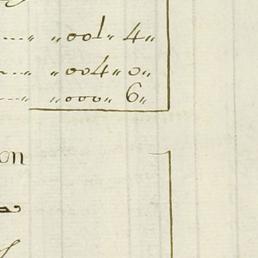 ...." "001" 4"
...." "004" 0"
...." "000" 6"
on